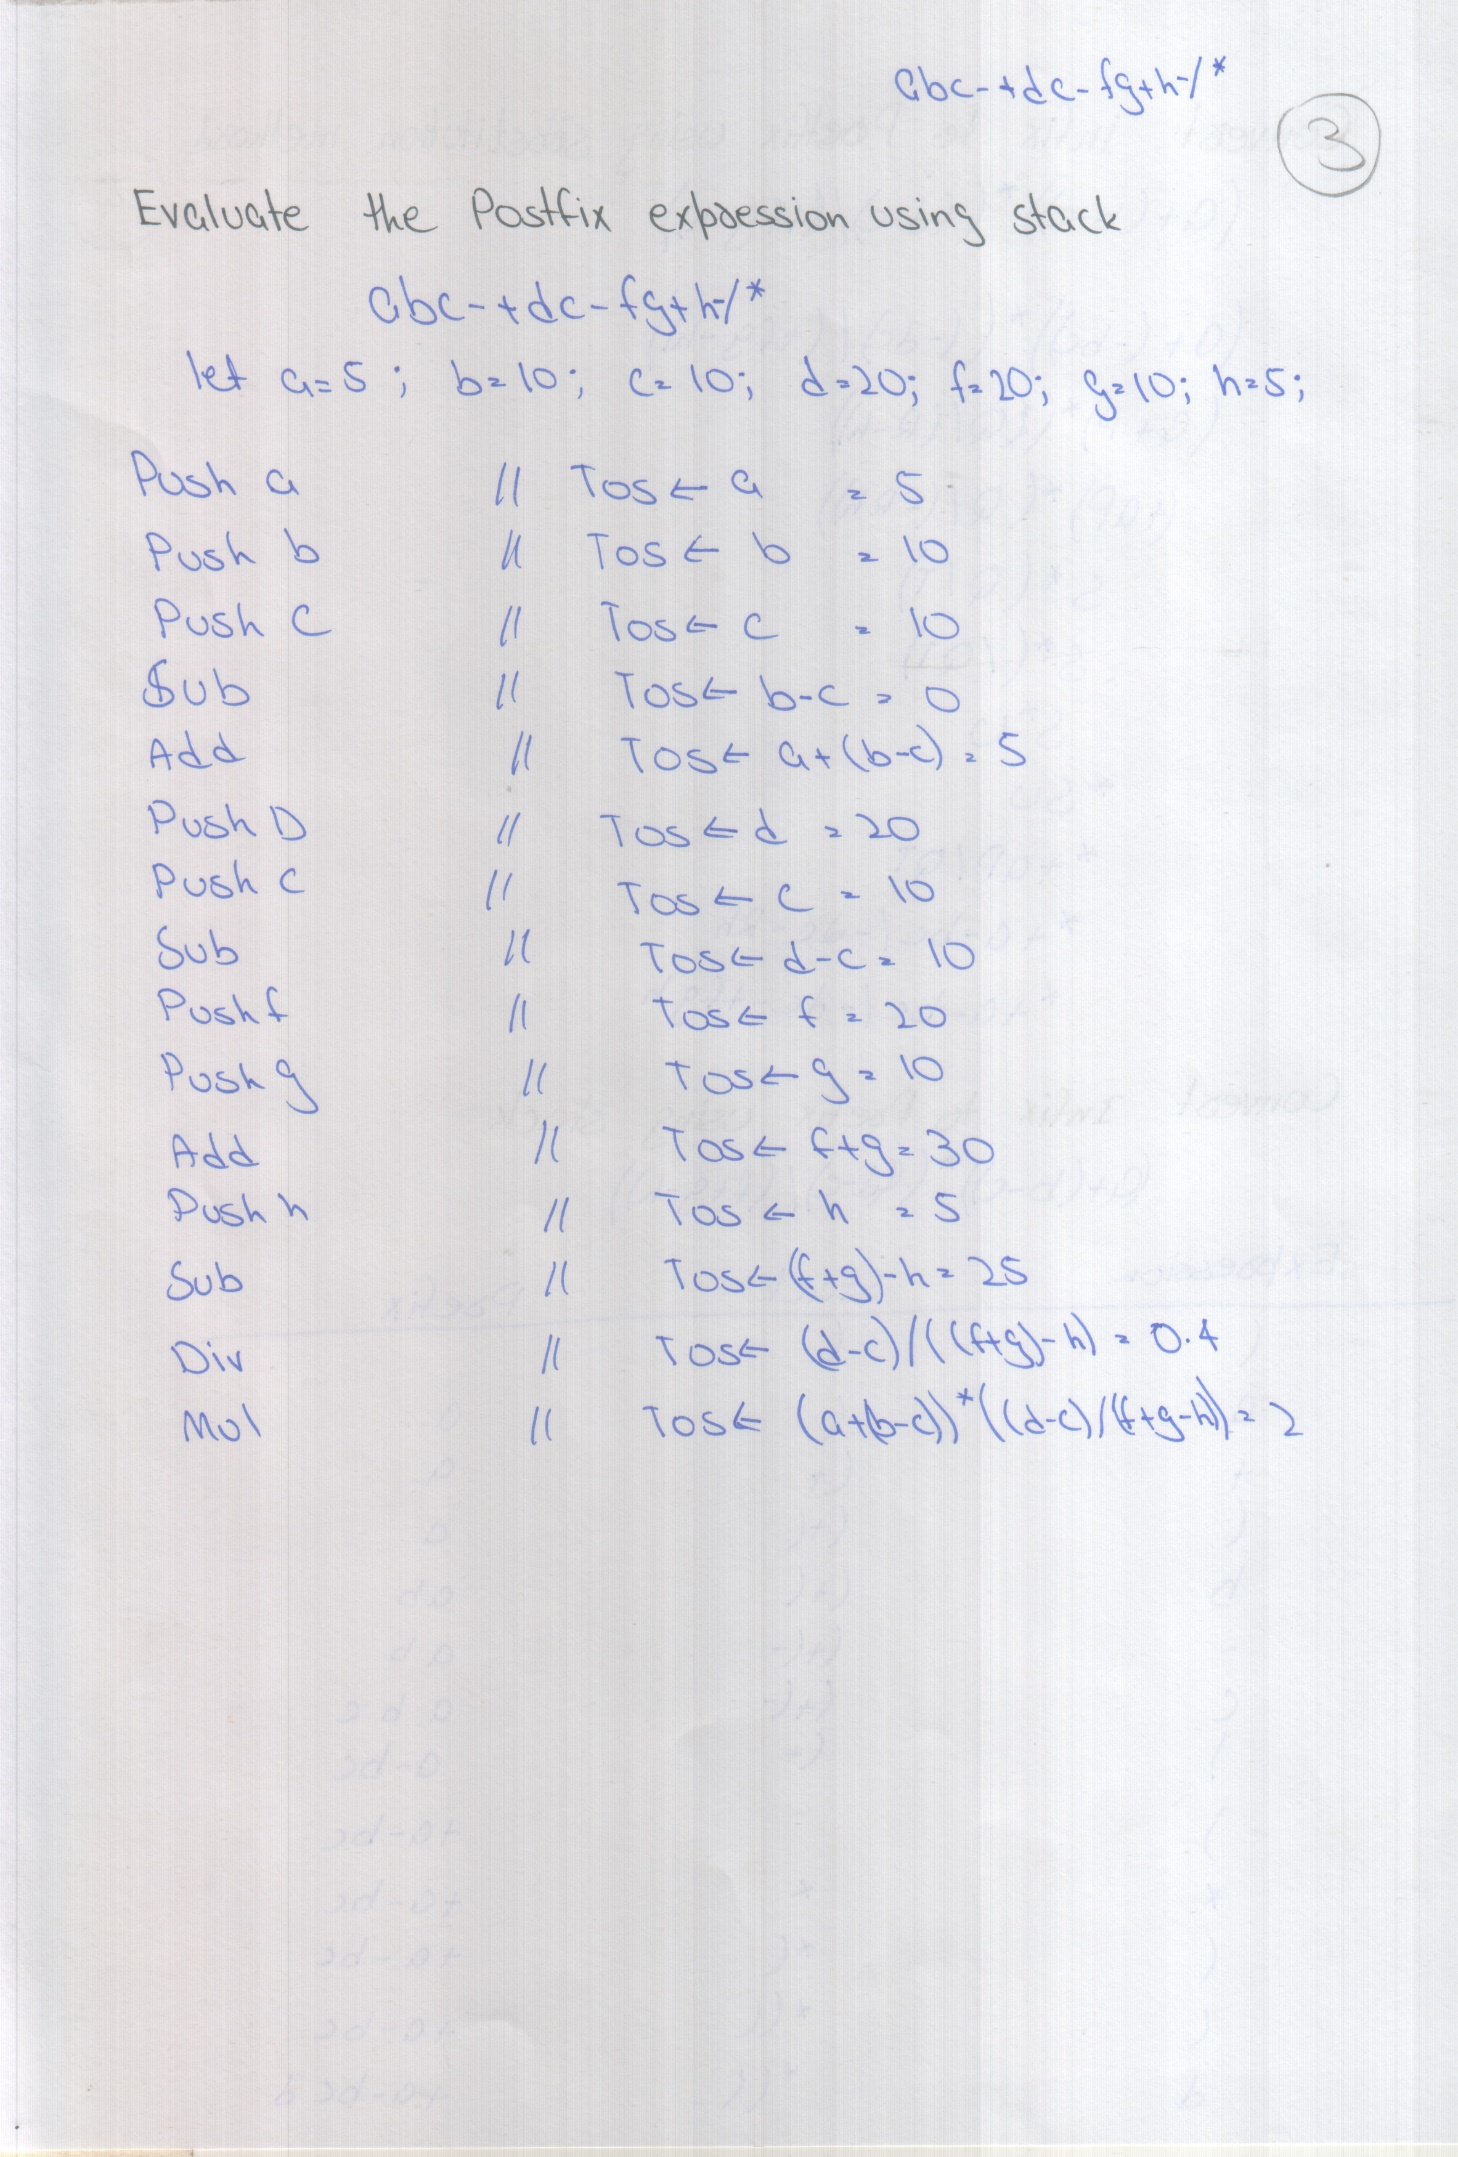 abc-+dc-fg+h-/*
3
Evaluate the Postfix expression using stack
abc-+dc-fg+h-/*
let a=5; b=10; c=10; d=20; f=20; g=10; h=5;
Push a // Tos ← a = 5
Push b // Tos ← b = 10
Push C // Tos ← c = 10
Sub // Tos ← b-c = 0
Add // Tos ← a+(b-c) = 5
Push D // Tos ← d = 20
Push C // Tos ← c = 10
Sub // Tos ← d-c = 10
Push f // Tos ← f = 20
Push g // Tos ← g = 10
Add // Tos ← f+g = 30
Push h // Tos ← h = 5
Sub // Tos ← (f+g)-h = 25
Div // Tos ← (d-c)/((f+g)-h) = 0.4
Mul // Tos ← (a+(b-c))*((d-c)/(f+g-h)) = 2